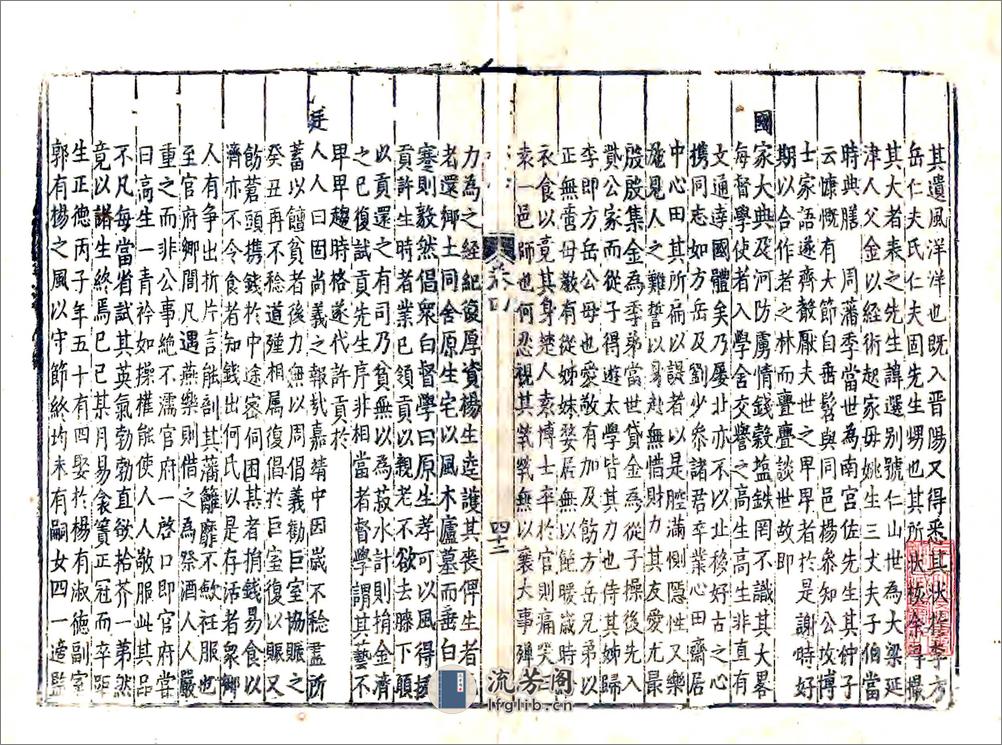 其遺風洋洋也既入晋陽又得悉其狀按李方
岳仁夫氏仁夫固先生甥也其所狀核余尋撮
其大者表之先生諱選別號仁山世為大梁延
津人父金以經術起家毋姚生三丈夫子伯當
時典膳 周藩季當世為南宮佐先生其仲子
云慷慨有大節自垂髫與同邑楊叅知公攻博
士家語遂齊聲厭夫世之卑卑者於是謝時好
期以合作者之林而亹亹談世故即
國家大典及河防虜情錢穀盐鉄罔不識其大畧
每督學使者入學舍交譽之高生高生非直有
文通達國體矣乃屡北亦不以北移好古之心
携同志如方岳及劉少叅諸君卒業心田齋居
中心田其所扁以諟者以是腔滿惻隱性又樂
施見人之難誓以身赴無惜財力其友愛尤最
殷殷集金為季弟遊太學皆其力也侍其姊歸
貲公家而從子得世貸金為從子操後先入
李即方岳公母也愛敬有加及飭方岳兄弟以
正無啻母教有從姊妹婺居無以餙腰歲時分
衣食以竟其身楚人袁博士卒於官則痛哭曰
袁一邑師也何忍視其煢煢無以襄大事殫
力為之經紀復厚資楊生逵護其喪俾生者歿
者還鄉土同舍原生宅以風木廬墓而垂白
寒則毅然倡衆白督學曰原生孝可以風得
貢許生時者業已領貢以親老不欲去膝下願
以貢還之有司乃貧無以為菽水計則捐金濟
之已復試貢先生序非相當者督學謂其藝不
卑卑趨時格遂代許貢於
廷人人曰固尚義之報㢤嘉靖中因歲不稔盖所
蓄以饘貧者後力無以周倡義勸巨室協賑之
癸丑再不稔道殣相属復倡於巨室復以賑又
飭蒼頭携錢於中途密伺困甚者捐錢易食以
濟亦不令食者知錢出何氏以是存活者衆鄉
人有争出折片言能剖其藩籬靡不歛衽服也
至官府鄉間凡遇燕樂則借之為祭酒人人嚴
重之而非公事絶不濡官府一啓口即官府甞
曰高生一青衿如操權能使人人敬服此其品
不凡每當省試其英氣勃勃直欲拾芥一第然
竟以諸生終焉已巳某月易衾簀正冠而卒距
生正德丙子年五十有四娶於楊有淑徳副室
郭有楊之風以守節終均未有嗣女四一適監
卷四
四十三
流芳阁
lfglib.cn